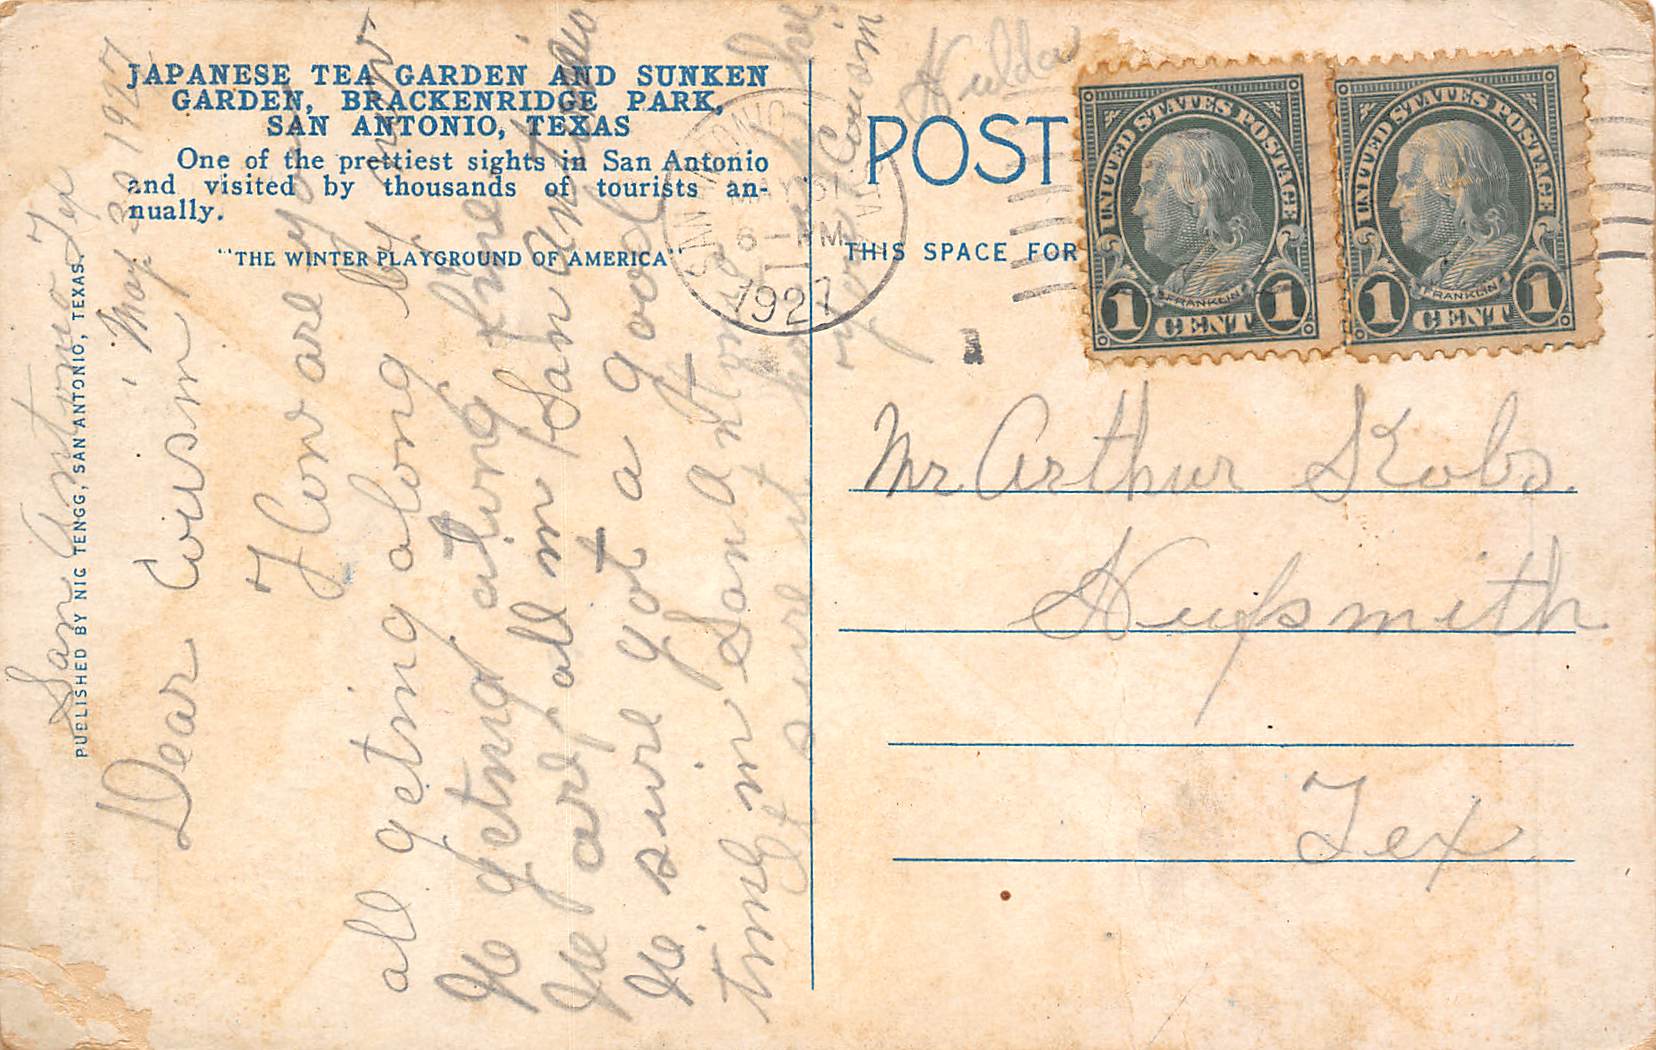 JAPANESE TEA GARDEN AND SUNKEN
GARDEN, BRACKENRIDGE PARK,
SAN ANTONIO, TEXAS
One of the prettiest sights in San Antonio
and visited by thousands of tourists an-
nually.
"THE WINTER PLAYGROUND OF AMERICA"
PUBLISHED BY NIC TENGG, SAN ANTONIO, TEXAS.
San Antonio Tex
May 30 1927
Dear Cousin
How are you
all geting along by now
We geting along fine
We are all in San Antonio
We sure got a good
time in San Antonio
It sure is
your Cousin
Hulda
POST
THIS SPACE FOR
SAN ANTONIO
6 - PM
1927
UNITED STATES POSTAGE
FRANKLIN
1 CENT 1
UNITED STATES POSTAGE
FRANKLIN
1 CENT 1
Mr. Arthur Kobs.
Hufsmith
Tex